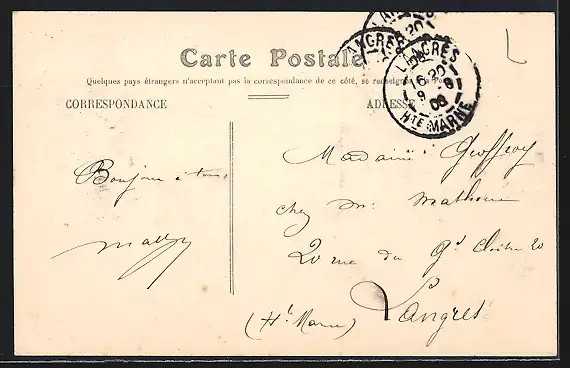 Carte Postale
Quelques pays étrangers n'acceptant pas la correspondance de ce côté, se renseigner à la Poste
CORRESPONDANCE
ADRESSE
LANGRES
16 20
9 -8
08
HTE MARNE
Bonjour à tous,
Madame Geoffroy
chez Mr. Mathieu
20 rue du Gd Cloître 20
Langres
(Hte Marne)